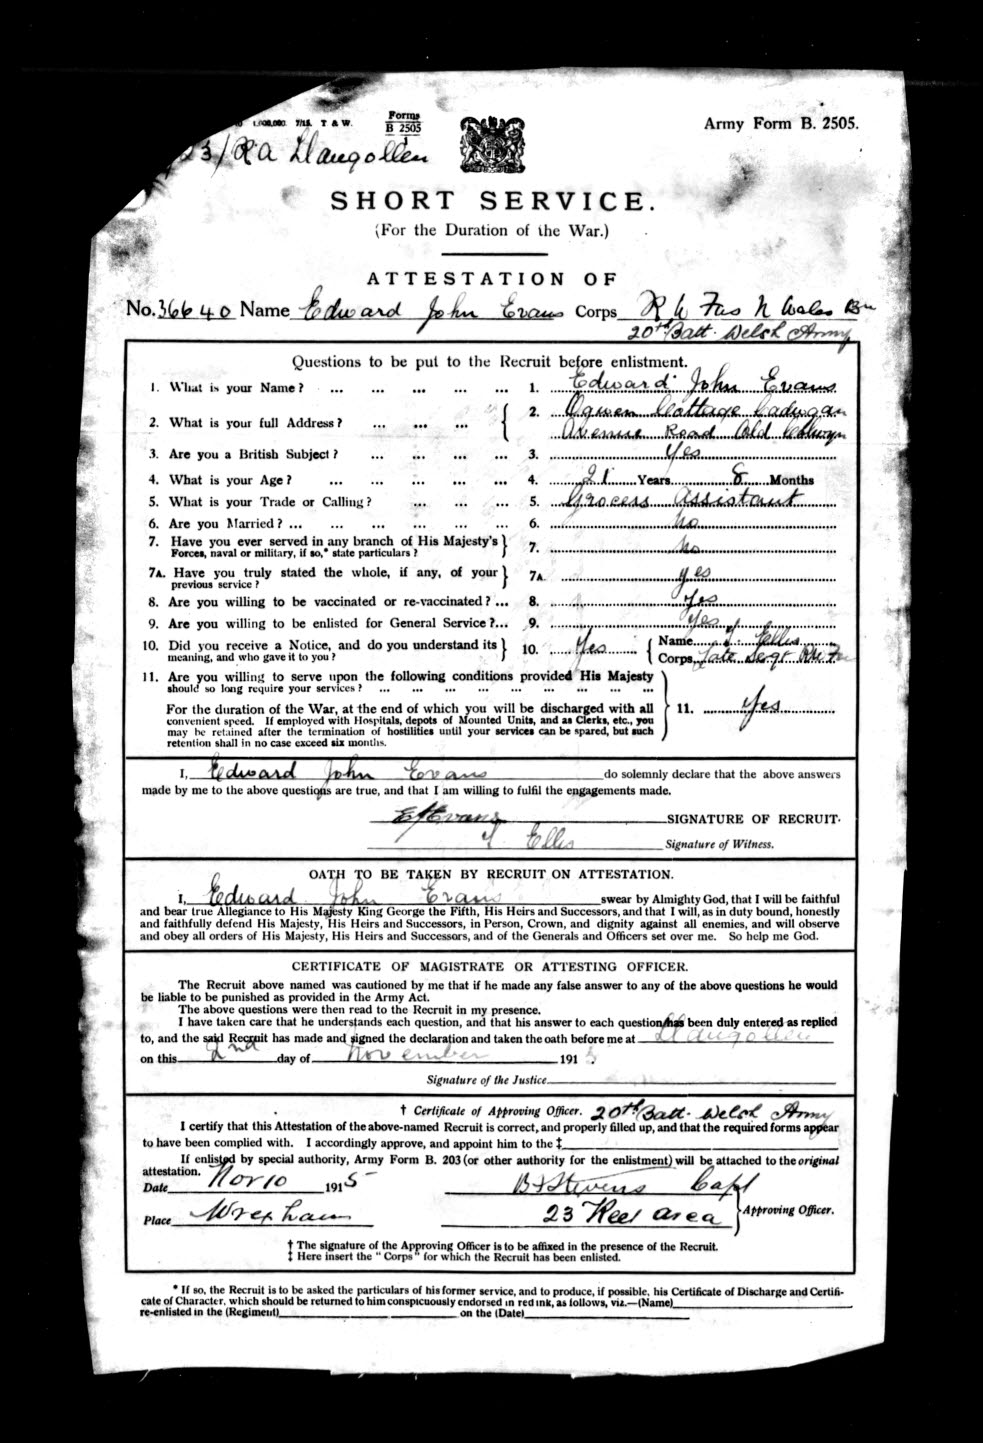 1,000,000. 7/15. T & W. Forms
B 2505
Army Form B. 2505.
23/RA Llangollen
SHORT SERVICE.
(For the Duration of the War.)
ATTESTATION OF
No. 36640 Name Edward John Evans Corps R W Fus N Wales Bn
20th Batt. Welsh Army
Questions to be put to the Recruit before enlistment.
1. What is your Name? ... ... ... ... ... 1. Edward John Evans
2. What is your full Address? ... ... ... 2. Ogwen Cottage Cadwgan
Avenue Road Old Colwyn
3. Are you a British Subject? ... ... ... ... 3. Yes
4. What is your Age? ... ... ... ... ... 4. 21 Years 8 Months
5. What is your Trade or Calling? ... ... ... 5. Grocers Assistant
6. Are you Married? ... ... ... ... ... ... 6. No
7. Have you ever served in any branch of His Majesty's
Forces, naval or military, if so,* state particulars? 7. No
7A. Have you truly stated the whole, if any, of your
previous service? 7A. Yes
8. Are you willing to be vaccinated or re-vaccinated? ... 8. Yes
9. Are you willing to be enlisted for General Service?... 9. Yes
10. Did you receive a Notice, and do you understand its
meaning, and who gave it to you? 10. Yes Name Ellis
Corps Late Sergt RW Fus
11. Are you willing to serve upon the following conditions provided His Majesty
should so long require your services? ... ... ... ... ... ... ... ... ...
For the duration of the War, at the end of which you will be discharged with all
convenient speed. If employed with Hospitals, depots of Mounted Units, and as Clerks, etc., you
may be retained after the termination of hostilities until your services can be spared, but such
retention shall in no case exceed six months.
11. Yes
I, Edward John Evans do solemnly declare that the above answers
made by me to the above questions are true, and that I am willing to fulfil the engagements made.
E J Evans SIGNATURE OF RECRUIT.
Ellis Signature of Witness.
OATH TO BE TAKEN BY RECRUIT ON ATTESTATION.
I, Edward John Evans swear by Almighty God, that I will be faithful
and bear true Allegiance to His Majesty King George the Fifth, His Heirs and Successors, and that I will, as in duty bound, honestly
and faithfully defend His Majesty, His Heirs and Successors, in Person, Crown, and dignity against all enemies, and will observe
and obey all orders of His Majesty, His Heirs and Successors, and of the Generals and Officers set over me. So help me God.
CERTIFICATE OF MAGISTRATE OR ATTESTING OFFICER.
The Recruit above named was cautioned by me that if he made any false answer to any of the above questions he would
be liable to be punished as provided in the Army Act.
The above questions were then read to the Recruit in my presence.
I have taken care that he understands each question, and that his answer to each question has been duly entered as replied
to, and the said Recruit has made and signed the declaration and taken the oath before me at Llangollen
on this 2nd day of November 1915.
Signature of the Justice
† Certificate of Approving Officer. 20th Batt. Welsh Army
I certify that this Attestation of the above-named Recruit is correct, and properly filled up, and that the required forms appear
to have been complied with. I accordingly approve, and appoint him to the ‡
If enlisted by special authority, Army Form B. 203 (or other authority for the enlistment) will be attached to the original
attestation.
Date Nov 10 1915 Stevens Capt
Place Wrexham 23 Rect area Approving Officer.
† The signature of the Approving Officer is to be affixed in the presence of the Recruit.
‡ Here insert the "Corps" for which the Recruit has been enlisted.
* If so, the Recruit is to be asked the particulars of his former service, and to produce, if possible, his Certificate of Discharge and Certifi-
cate of Character, which should be returned to him conspicuously endorsed in red ink, as follows, viz.—(Name)
re-enlisted in the (Regiment) on the (Date)